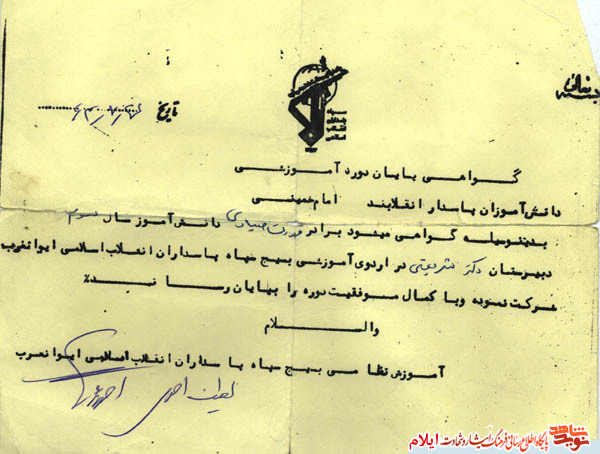 بسمه تعالی
تاریخ
سپاه پاسداران انقلاب اسلامی
گواهی پایان دوره آموزشی
دانش‌آموزان پاسدار انقلابند امام خمینی
بدینوسیله گواهی میشود برادر قدرت دانش‌آموز سال سوم
دبیرستان دکتر شریعتی در اردوی آموزشی بسیج سپاه پاسداران انقلاب اسلامی ایوانغرب
شرکت نموده وبا کمال موفقیت دوره را بپایان رسانید٪
والسلام
آموزش نظامی بسیج سپاه پاسداران انقلاب اسلامی ایوانغرب
نوید شاهد پایگاه اطلاع رسانی فرهنگ ایثار و شهادت ایلام